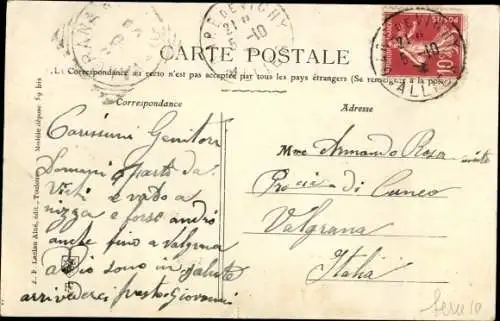 GARE DE VICHY
21
5-10
ALLIER
POSTES
10
CARTE POSTALE
La Correspondance au recto n'est pas acceptée par tous les pays étrangers (Se renseigner à la poste)
Correspondance
Adresse
Carissimi Genitori
Domani parto da
Vichi e vado a
nizza e forse andrò
anche fino a Valgrana
adio sono in salute
arrivederci presto Giovanni
Mme Armando Rosa
Procia di Cuneo
Valgrana
Italia
J. P. Lucien Aîné, édit. - Toulouse
Modèle déposé 59 bis